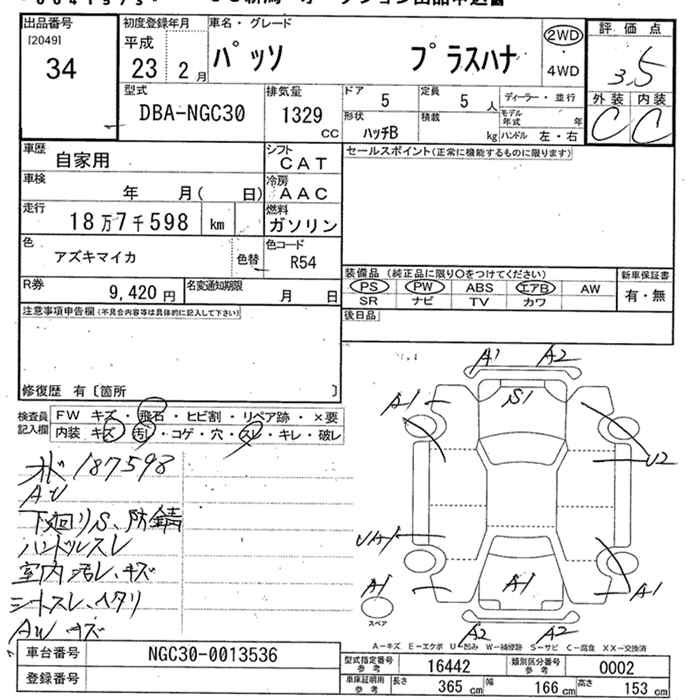 出品番号
[2049]
34
初度登録年月
平成
23 2月
車名・グレード
パッソ プラスハナ
2WD
・
4WD
評価点
3.5
外装 内装
C C
型式
DBA-NGC30
排気量
1329
CC
ドア
5
定員
5 人
ディーラー・並行
形状
ハッチB
積載
kg
モデル年式 年
ハンドル 左・右
車歴
自家用
シフト
CAT
セールスポイント(正常に機能するものに限ります)
車検
年 月( 日)
冷房
AAC
走行
18万7千598 km
燃料
ガソリン
色
アズキマイカ
色替
色コード
R54
R券
9,420 円
名変通知期限
月 日
装備品 (純正品に限り○をつけてください)
PS PW ABS エアB AW
SR ナビ TV カワ
新車保証書
有・無
後日品
注意事項申告欄(不具合内容等は具体的に記入して下さい)
修復歴 有〔箇所 〕
検査員
記入欄
FW キズ・飛石・ヒビ割・リペア跡・×要
内装 キズ・汚レ・コゲ・穴・スレ・キレ・破レ
オド187598
AU
下廻りS、防錆
ハンドルスレ
室内汚レ、キズ
シートスレ、ヘタリ
AWキズ
A1 A2
A1 S1
U2
UA1
A1 A1 A1
スペア
A2 A2
A-キズ E-エクボ U-凹み W-補修跡 S-サビ C-腐食 XX-交換済
車台番号
NGC30-0013536
登録番号
型式指定番号
参考
16442
類別区分番号
参考
0002
車庫証明用
参考
長さ
365 cm
幅
166 cm
高さ
153 cm